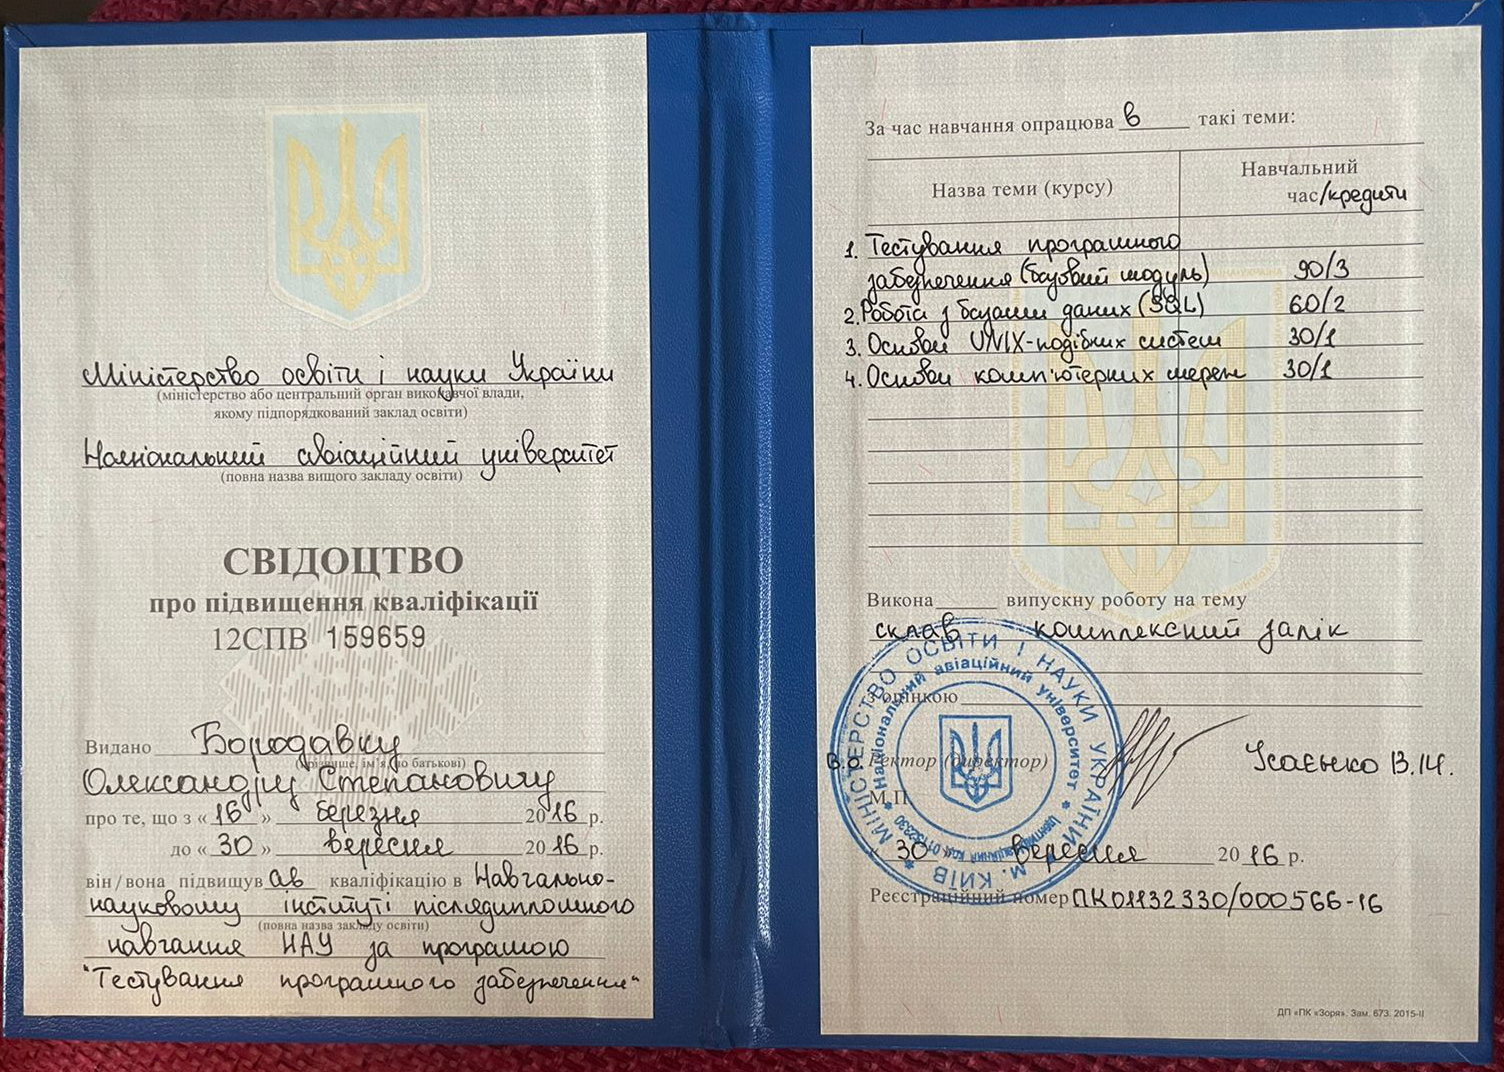 Міністерство освіти і науки України
(міністерство або центральний орган виконавчої влади,
якому підпорядкований заклад освіти)
Національний авіаційний університет
(повна назва вищого закладу освіти)
СВІДОЦТВО
про підвищення кваліфікації
12СПВ 159659
Видано Бородавку
(прізвище, ім'я, по батькові)
Олександру Степановичу
про те, що з «16» березня 2016 р.
до «30» вересня 2016 р.
він/вона підвищував кваліфікацію в Навчально-
науковому інституті післядипломного
(повна назва закладу освіти)
навчання НАУ за програмою
"Тестування програмного забезпечення"
За час навчання опрацював такі теми:
Назва теми (курсу)
Навчальний
час/кредити
1. Тестування програмного
забезпечення (базовий модуль) 90/3
2. Робота з базами даних (SQL) 60/2
3. Основи UNIX-подібних систем 30/1
4. Основи комп'ютерних мереж 30/1
Викона випускну роботу на тему
склав комплексний залік
з оцінкою
В.о. Ректор (директор) Ісаєнко В.М.
М.П.
«30 вересня 2016 р.
Реєстраційний номер ПК01132330/000566-16
МІНІСТЕРСТВО ОСВІТИ І НАУКИ УКРАЇНИ * М. КИЇВ *
Національний авіаційний університет * Ідентифікаційний код 01132330 *
ДП «ПК «Зоря». Зам. 673. 2015-ІІ